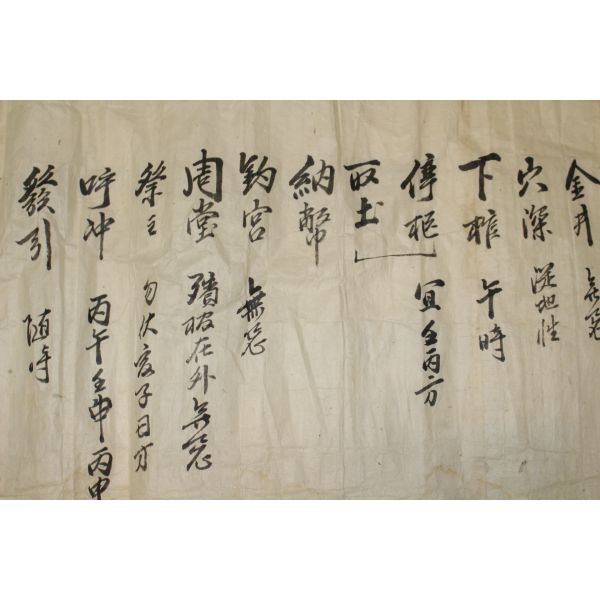 金井 無忌
穴深 從地性
下棺 午時
停柩
取土 宜壬丙方
納幣
鈞宮 無忌
周堂 殯柩在外無忌
祭主 勿伏度子日方
呼冲 丙午壬申丙申
發引 随時